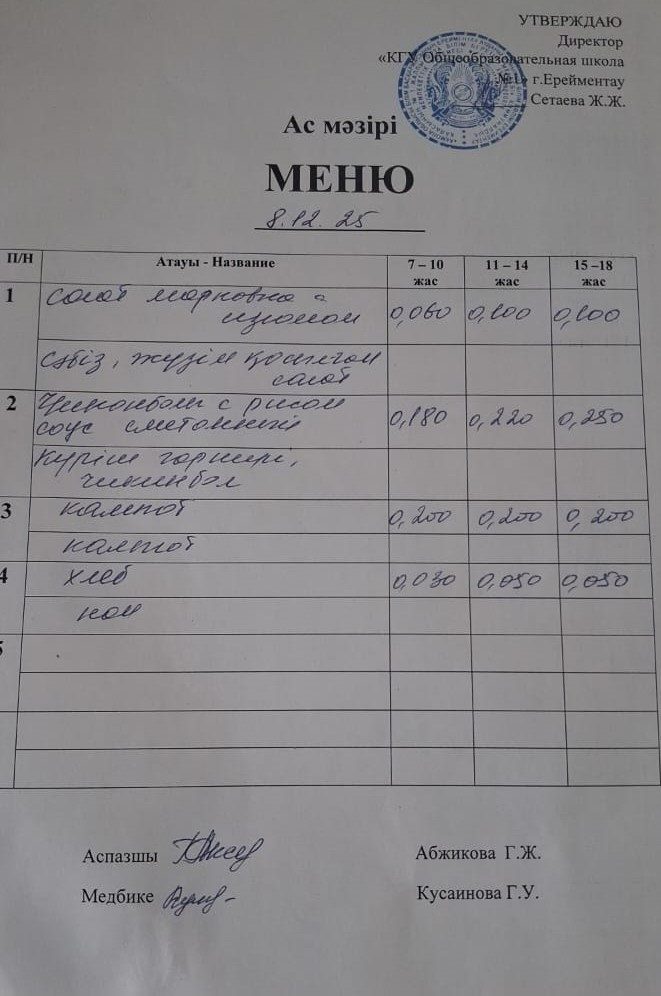 УТВЕРЖДАЮ
Директор
«КГУ Общеобразовательная школа
№1» г.Ерейментау
Сетаева Ж.Ж.
Ас мәзірі
МЕНЮ
8.12.25
П/Н Атауы - Название 7 – 10 жас 11 – 14 жас 15 –18 жас
1 Салат морковна с
изюмом 0,060 0,100 0,100
Сәбіз, жүзім қосылған
салат
2 Чикенболы с рисом
соус сметанный 0,180 0,220 0,250
Күріш гарнирі,
чикинбол
3 кампот 0,200 0,200 0,200
кампот
4 хлеб 0,030 0,050 0,050
нан
5
Аспазшы Абжикова Г.Ж.
Медбике Кусаинова Г.У.